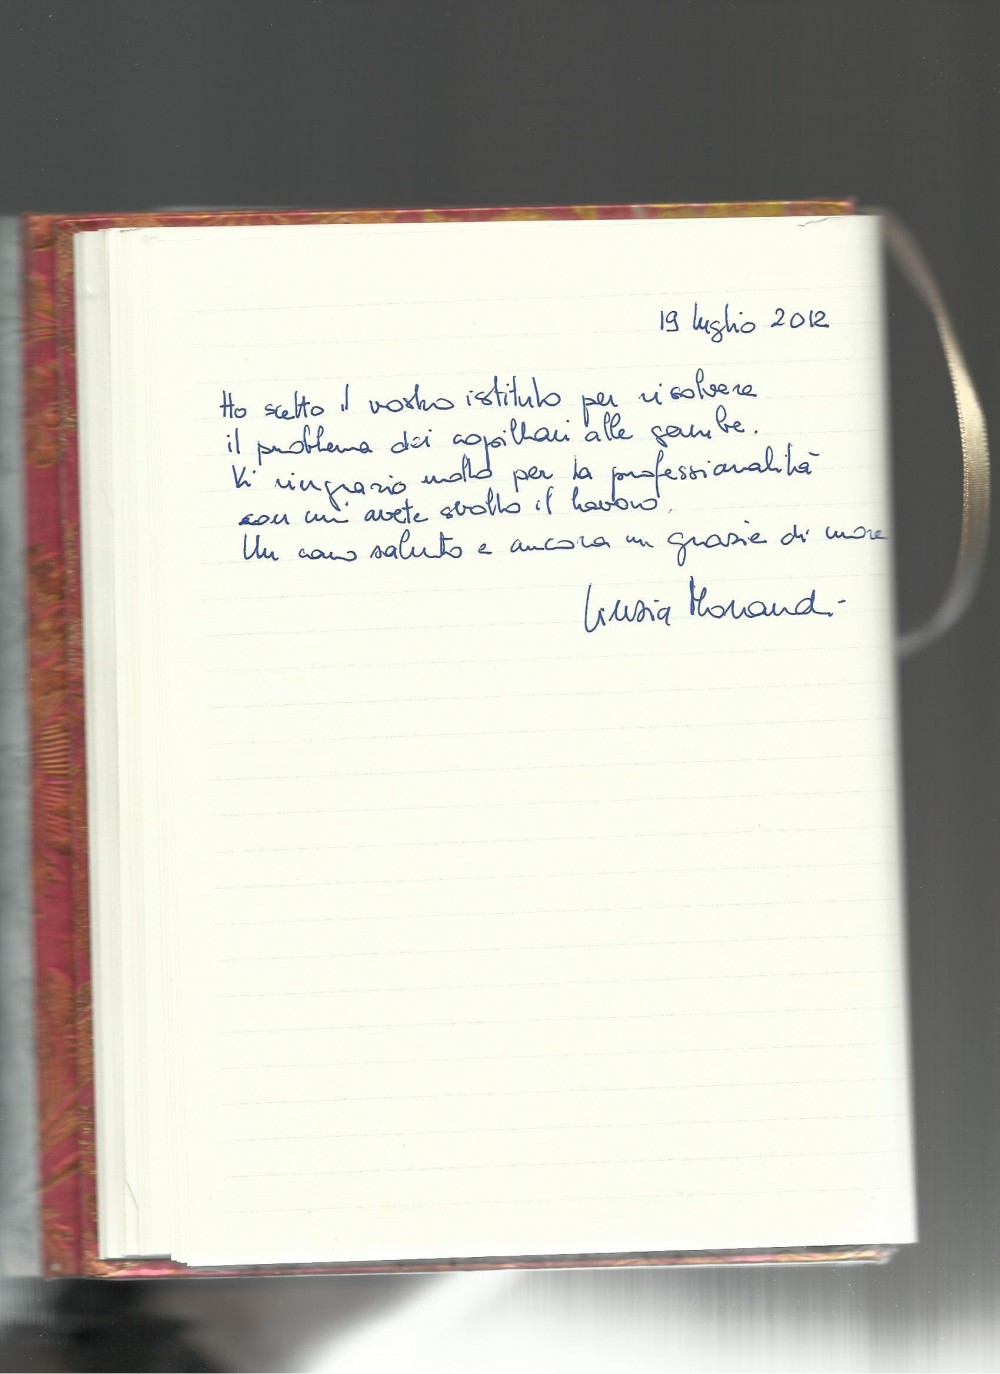 19 luglio 2012
Ho scelto il vostro istituto per risolvere
il problema dei capillari alle gambe.
Vi ringrazio molto per la professionalità
con cui avete svolto il lavoro.
Un caro saluto e ancora un grazie di cuore
Morandi